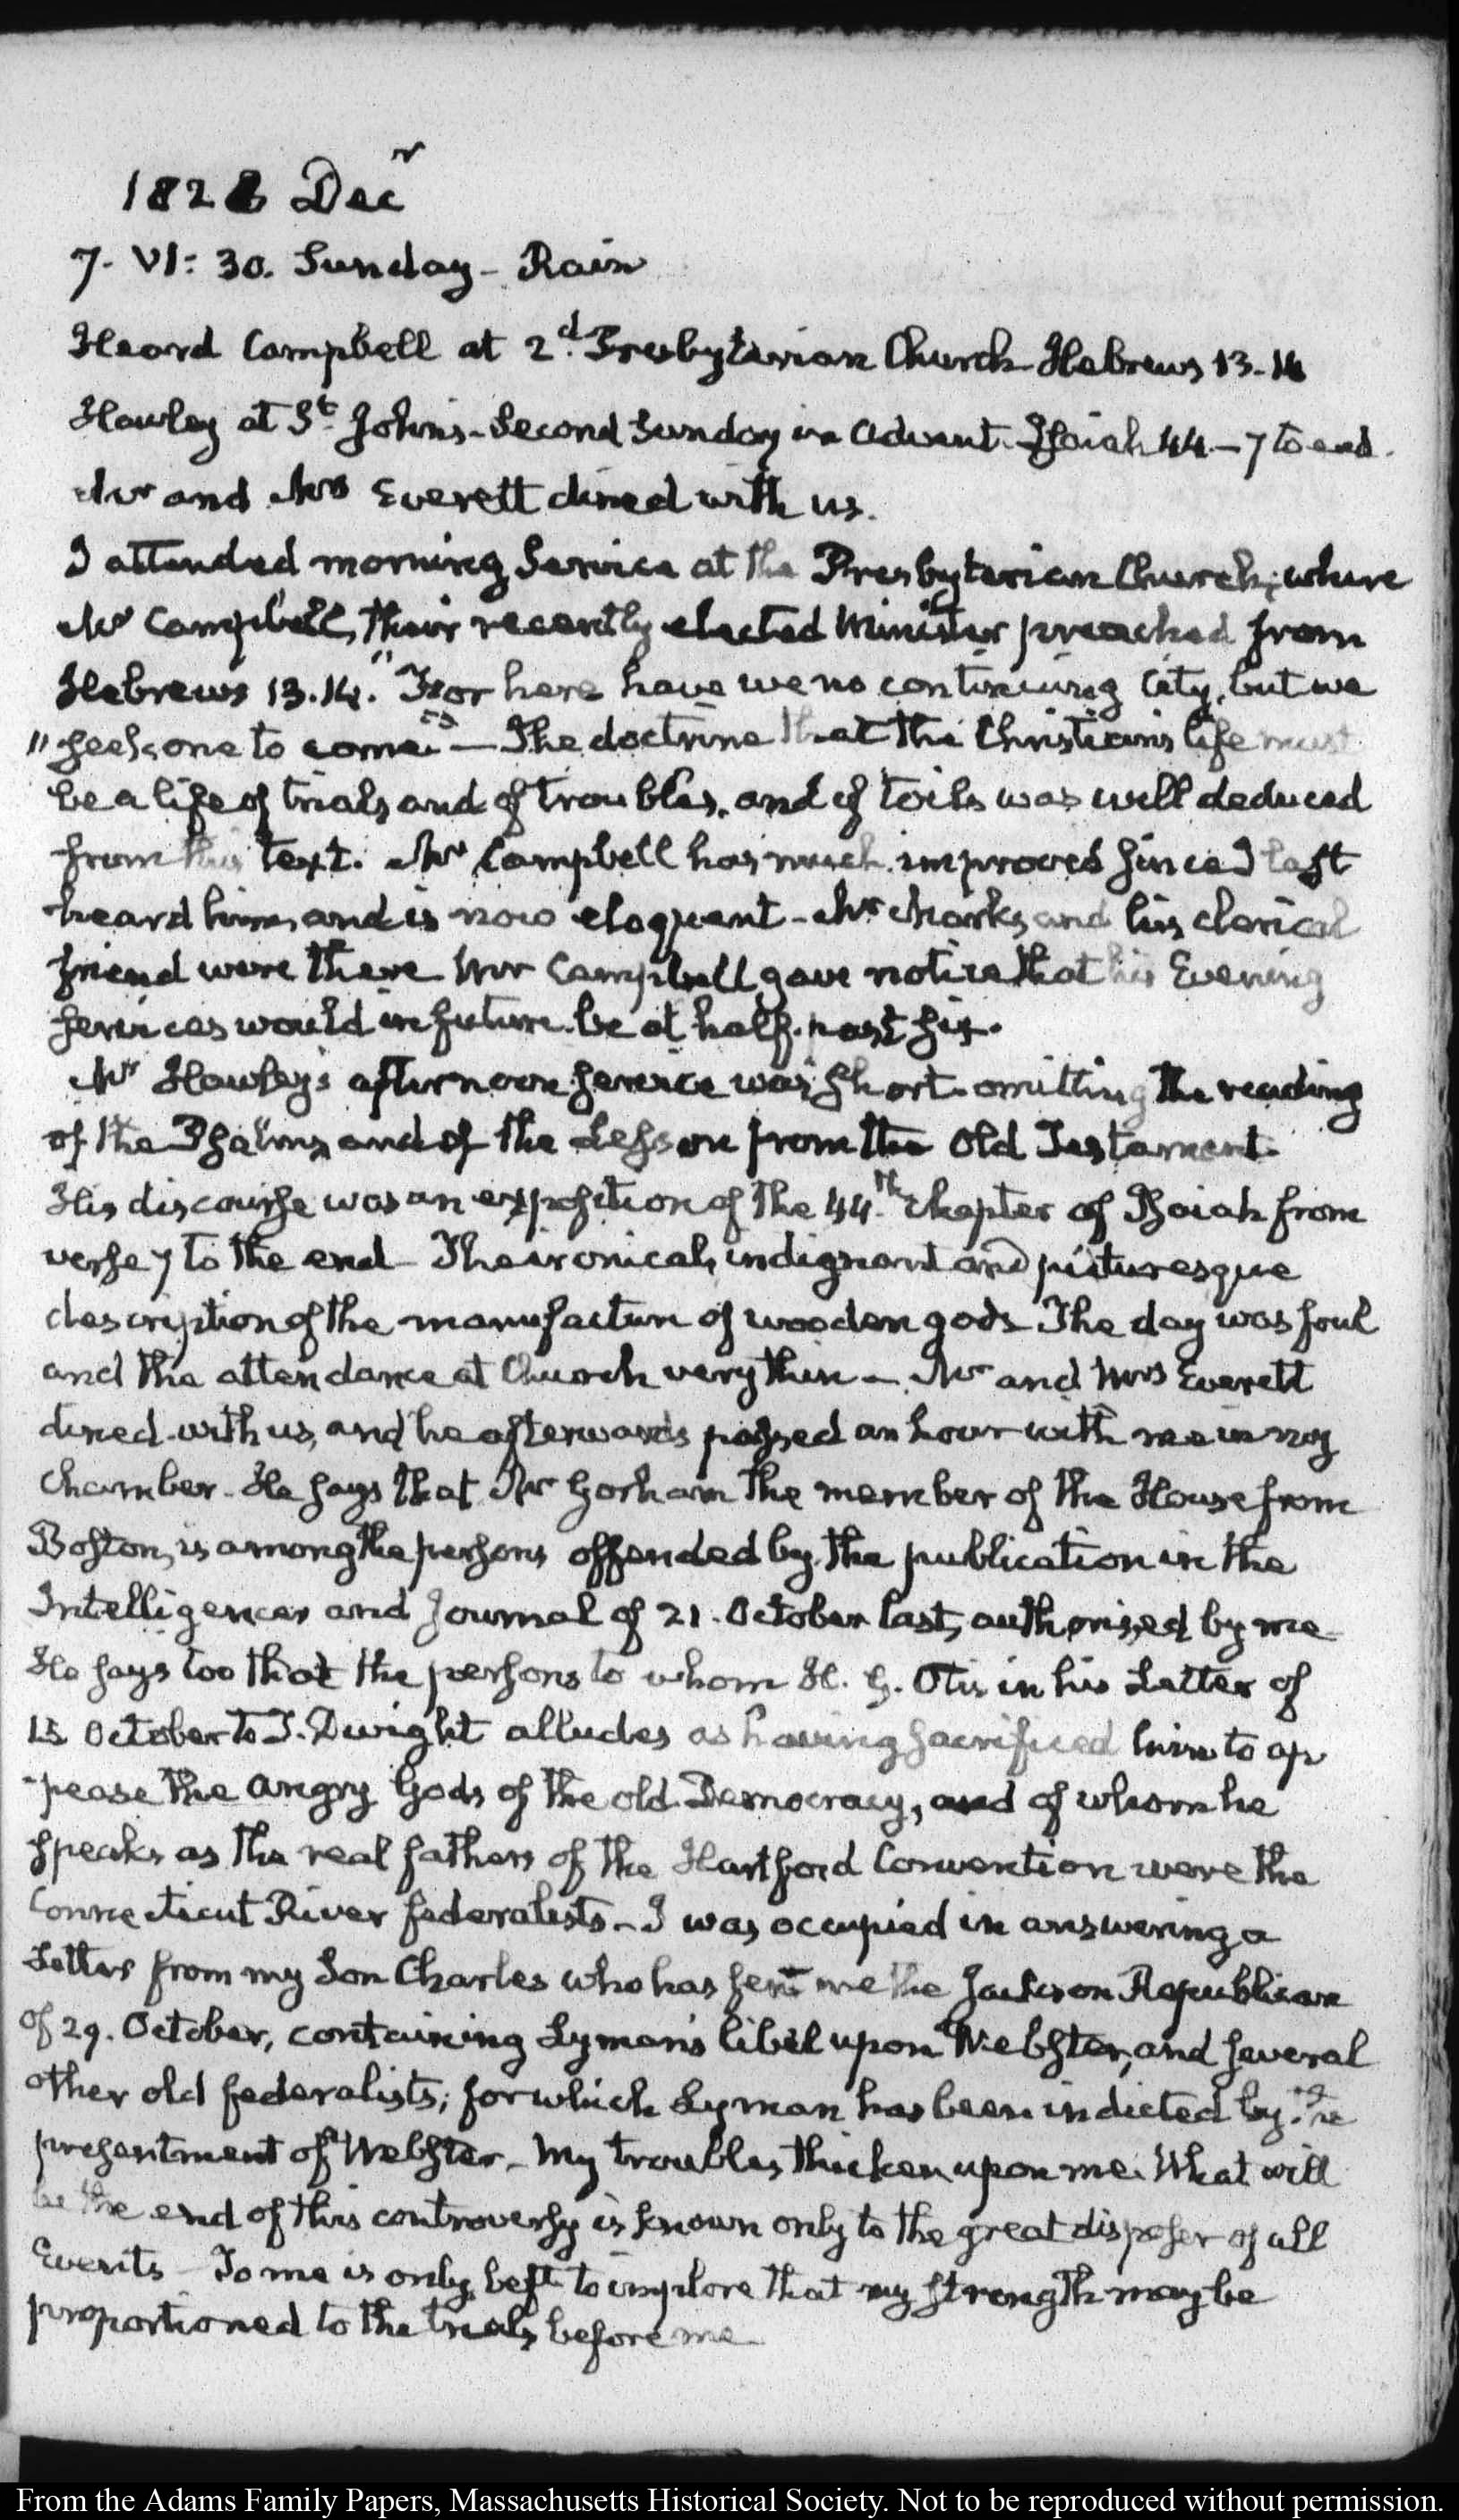 1828 Decr
7. VI: 30. Sunday – Rain
Heard Campbell at 2d. Presbyterian Church Hebrews 13.14
Hawley at St. John's – Second Sunday in Advent. Isaiah 44. – 7 to end.
Mr and Mrs Everett dined with us.
I attended morning Service at the Presbyterian Church; where
Mr Campbell, their recently elected Minister preached from
Hebrews 13.14. "For here have we no continuing City, but we
"seek one to come" – The doctrine that the Christian's life must
be a life of trials and of troubles, and of toils was well deduced
from this text. Mr Campbell has much improved since I last
heard him, and is now eloquent – Mr Marks, and his clerical
friend were there Mr Campbell gave notice that his Evening
services would in future be at half past six.
Mr Hawley's afternoon service was short. omitting the reading
of the Psalms, and of the Lesson from the Old Testament.
His discourse was an exposition of the 44th. chapter of Isaiah from
verse 7 to the end – The ironical, indignant and picturesque
description of the manufacture of wooden gods The day was foul
and the attendance at Church very thin – Mr and Mrs Everett
dined with us, and he afterwards passed an hour with me in my
Chamber. He says that Mr Gorham the member of the House from
Boston, is among the persons offended by the publication in the
Intelligencer and Journal of 21. October last, authorised by me
He says too that the persons to whom H. G. Otis in his Letter of
October to T. Dwight alludes as having sacrificed him to ap
-pease the angry Gods of the old Democracy, and of whom he
speaks as the real fathers of the Hartford Convention were the
Connecticut River federalists – I was occupied in answering a
Letter from my Son Charles who has sent me the Jackson Republican
of 29. October, containing Lyman's libel upon Webster, and several
other old federalists; for which Lyman has been indicted by the
presentment of Webster – My troubles thicken upon me. What will
be the end of this controversy is known only to the great disposer of all
Events – To me is only left to implore that my strength may be
proportioned to the trials before me
From the Adams Family Papers, Massachusetts Historical Society. Not to be reproduced without permission.